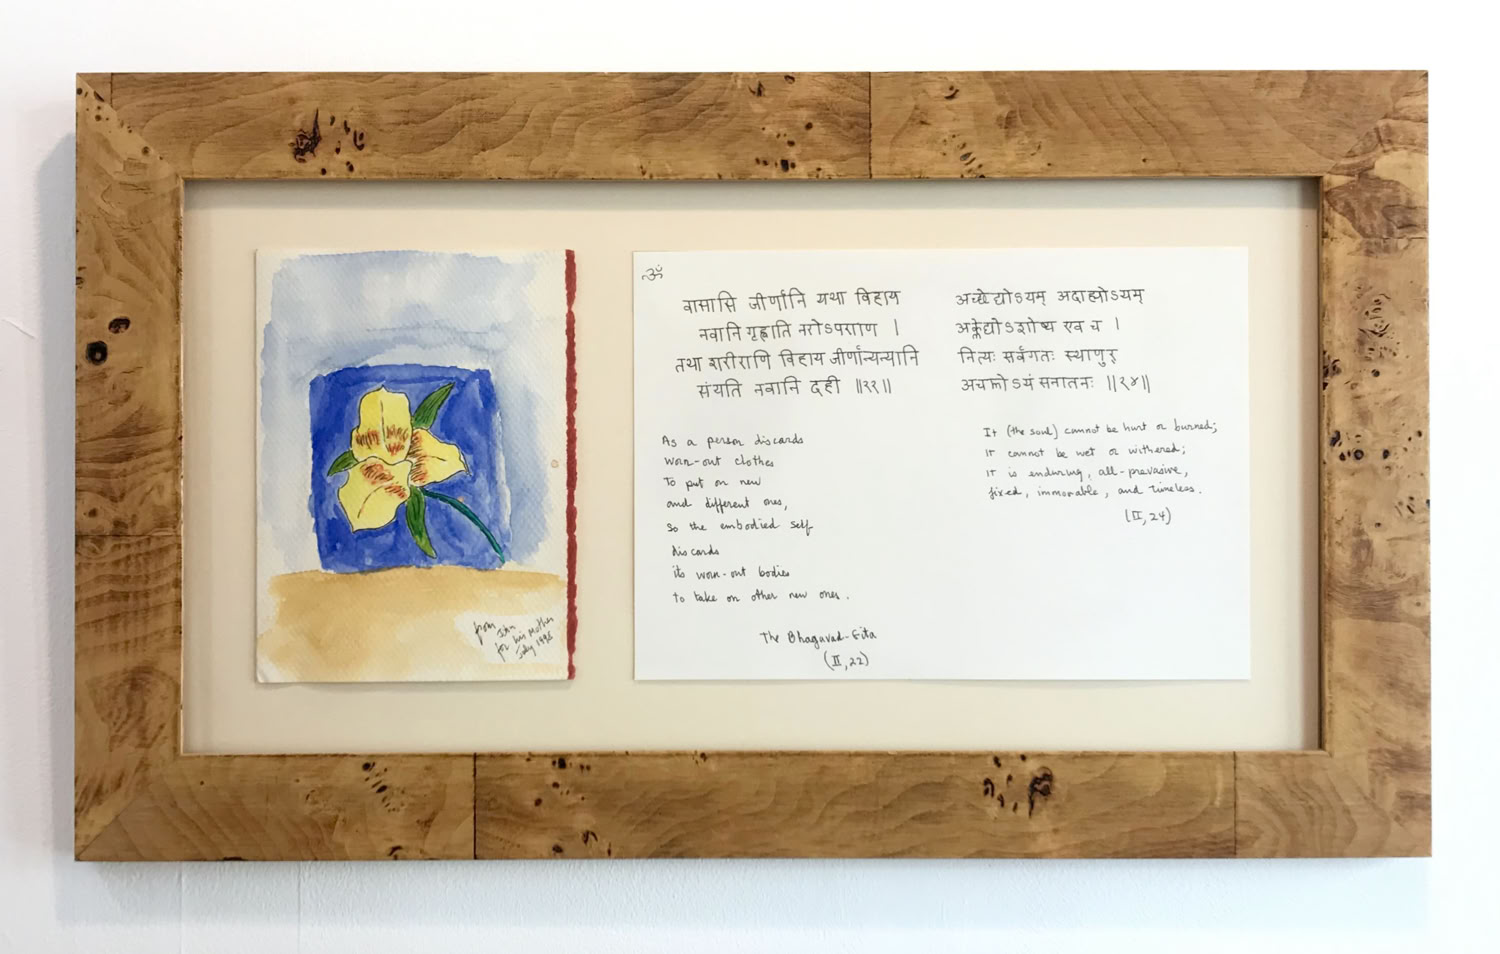 from
John
for his Mother
July 1996
ॐ
वासासि जीर्णानि यथा विहाय
नवानि गृह्णाति नरोऽपराण ।
तथा शरीराणि विहाय जीर्णान्यन्यानि
संयति नवानि दही ॥२२॥
As a person discards
worn-out clothes
To put on new
and different ones,
So the embodied self
discards
its worn-out bodies
to take on other new ones.
The Bhagavad-Gita
(II, 22)
अच्छेद्योऽयम् अदाह्योऽयम्
अक्लेद्योऽशोष्य एव च ।
नित्यः सर्वगतः स्थाणुर्
अचलोऽयं सनातनः ॥२४॥
It (the soul) cannot be hurt or burned;
It cannot be wet or withered;
It is enduring, all-prevasive,
fixed, immovable, and timeless.
(II, 24)